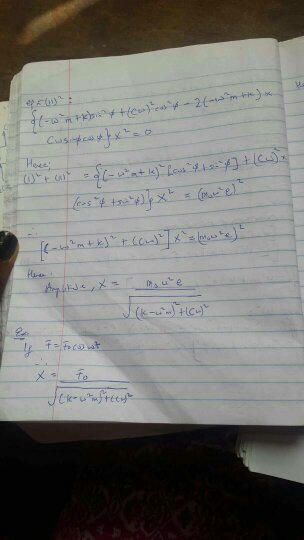 eqn (II)² :
{(-ω²m+k)²sin²φ + (cω)²cos²φ - 2(-ω²m+k) x
cω sinφ cosφ} x² = 0
Hence;
(I)² + (II)² = {(-ω²m+k)² [cos²φ + sin²φ] + (cω)² x
[cos²φ + sin²φ]} x² = (m₀ω²e)²
∴
[(-ω²m+k)² + (cω)²] x² = (m₀ω²e)²
Hence:
Amplitude, X = m₀ω²e / √((k-ω²m)² + (cω)²)
If F = F₀ cos ωt
∴
X = F₀ / √((k-ω²m)² + (cω)²)